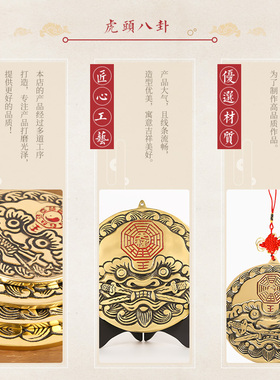 虎頭八卦
優選材質
为了制作高品质作品
匠心工藝
产品大气，且线条流畅，
造型优美，寓意吉祥美好。
本店的产品经过多道工序
打造，专注产品打磨光泽，
提供更好的品质！